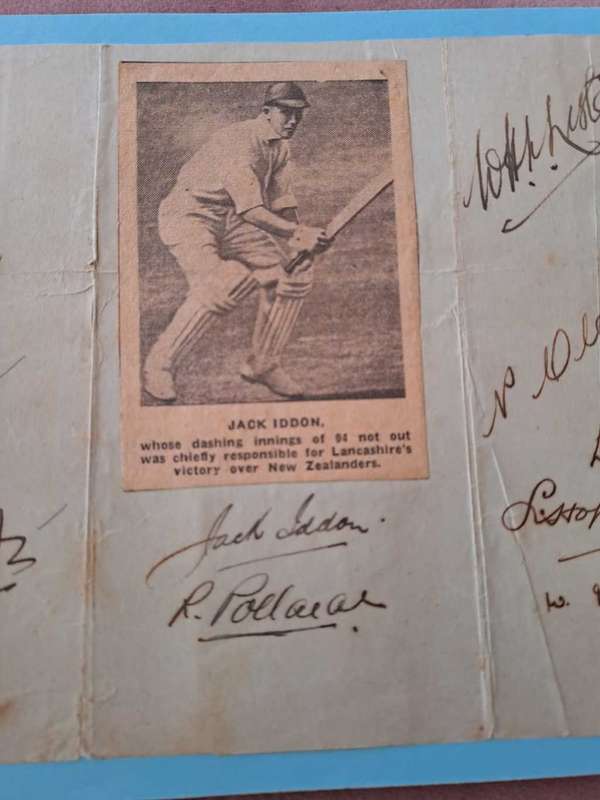 JACK IDDON,
whose dashing innings of 94 not out
was chiefly responsible for Lancashire's
victory over New Zealanders.
Jack Iddon.
R. Pollard.
N
W.